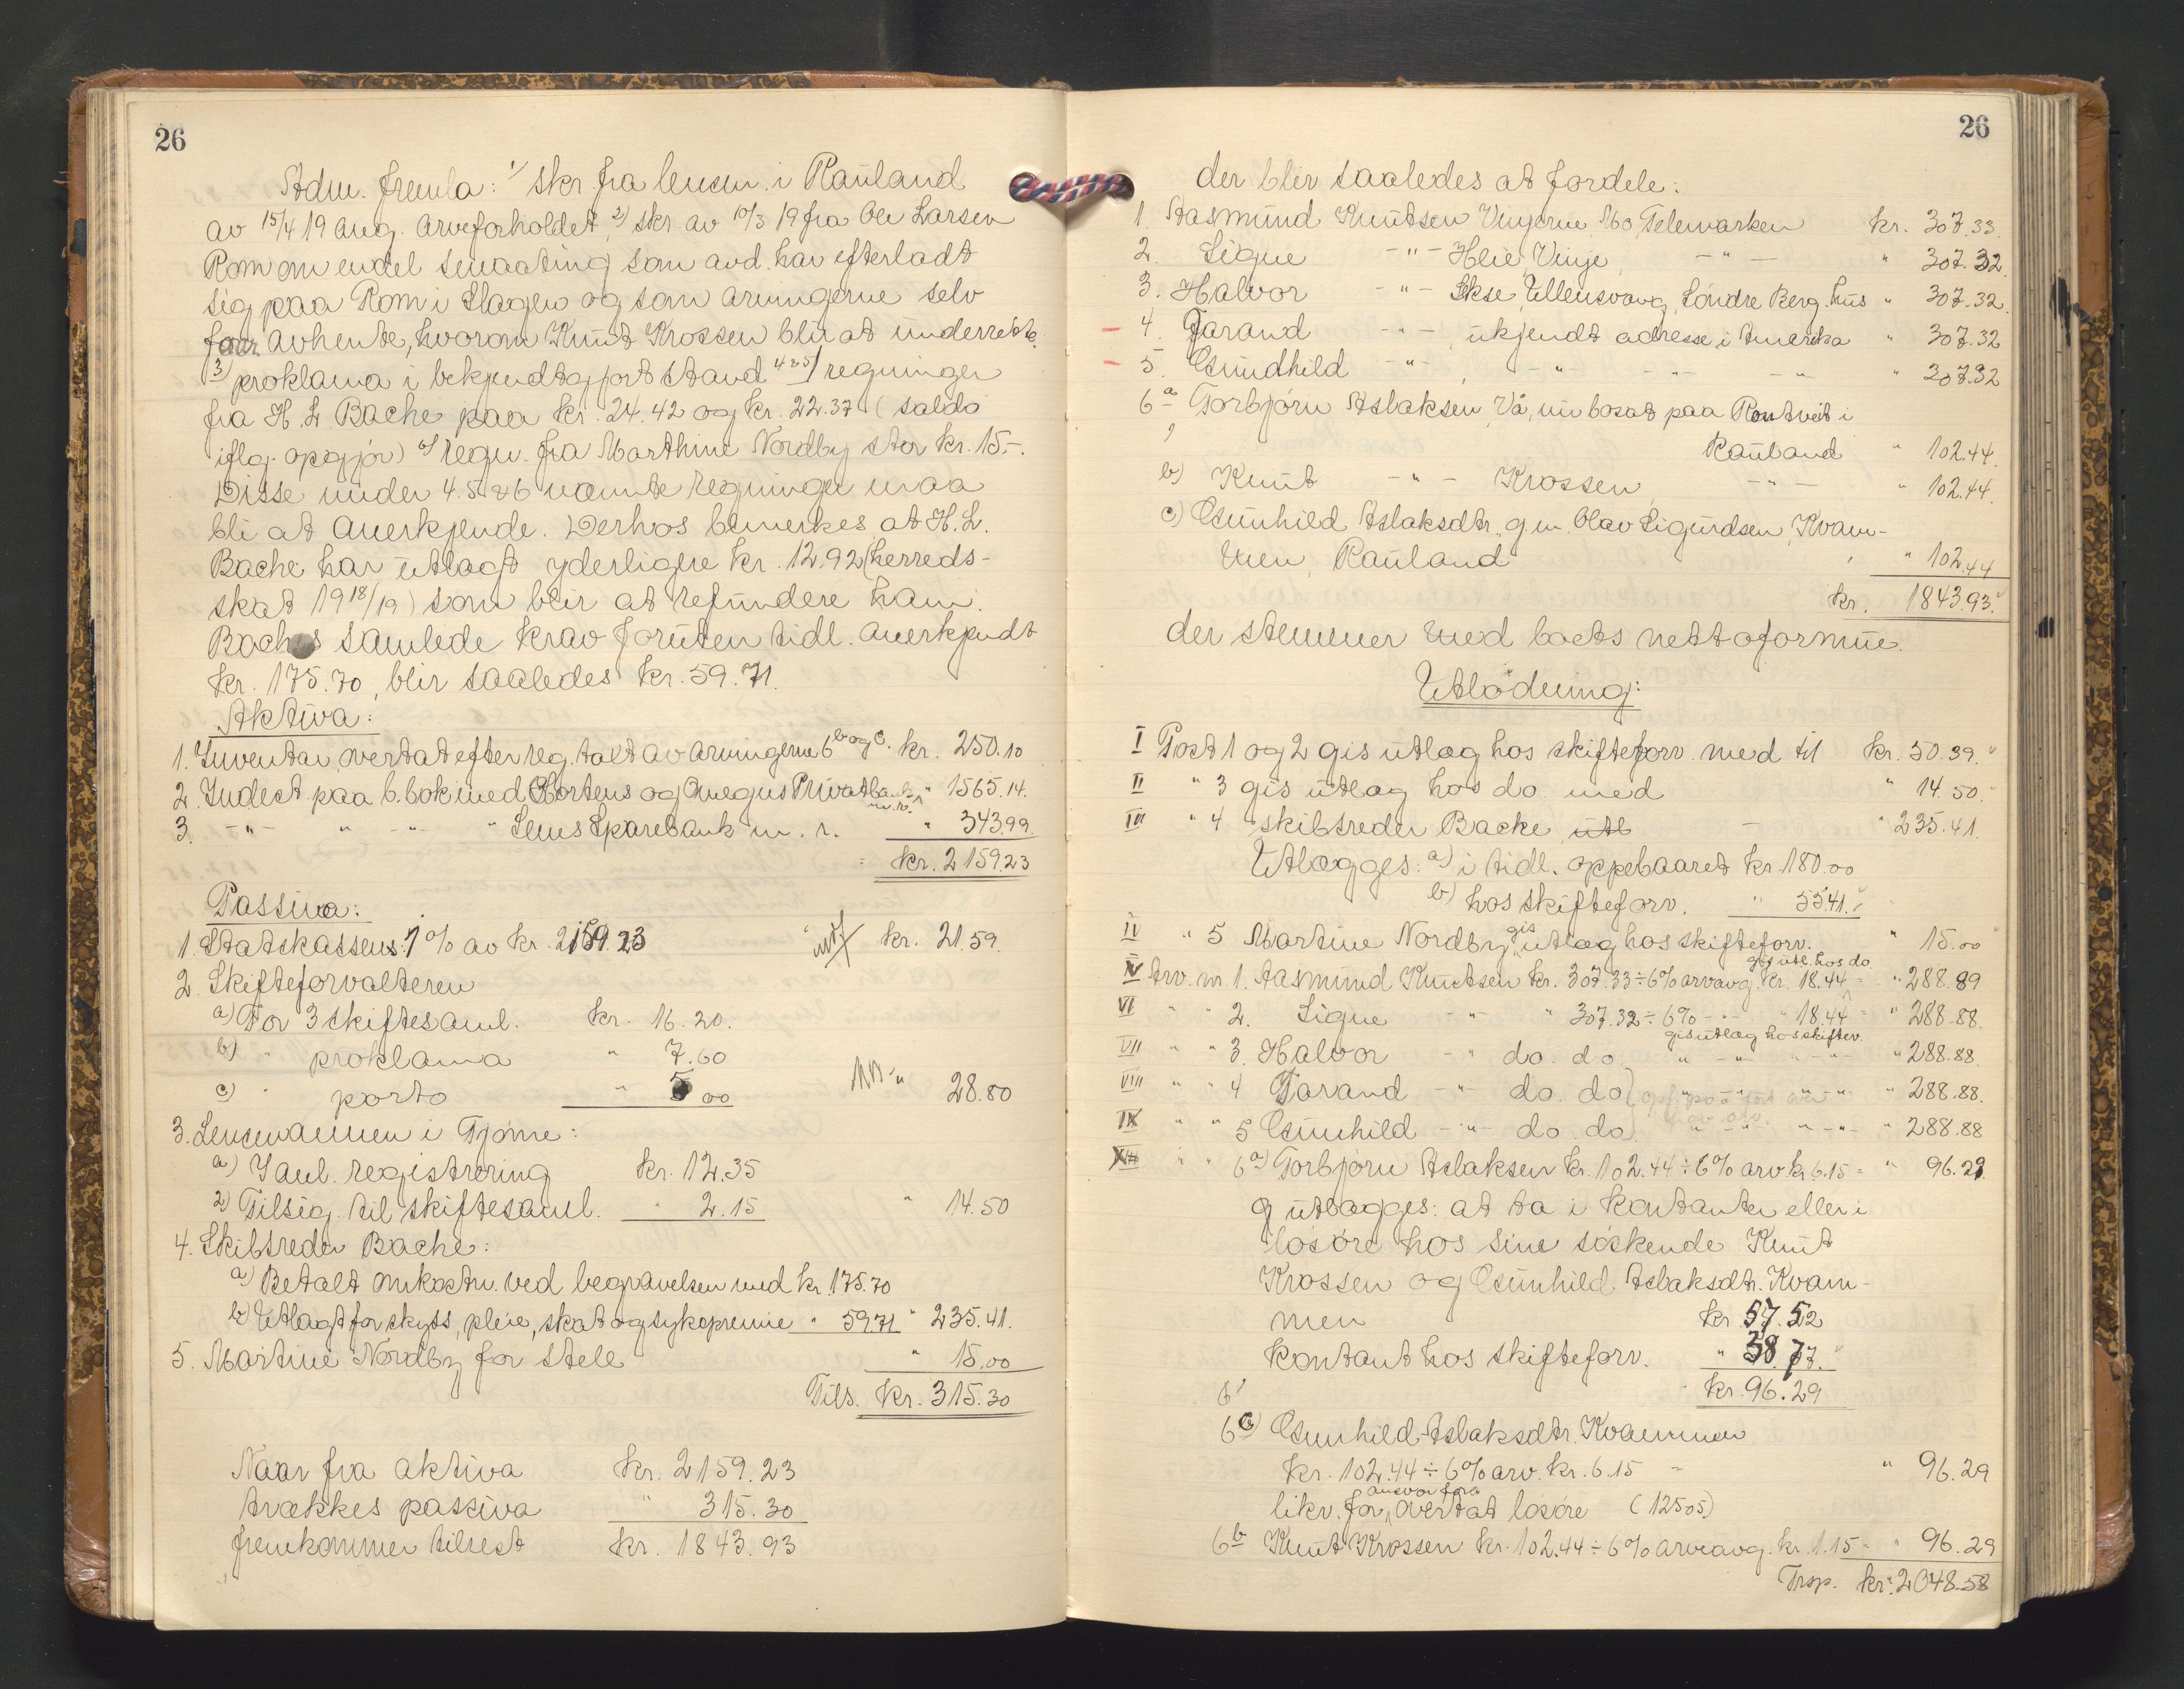 26
Adm. fremla: 1/ skr. fra lensm. i Rauland
av 15/4 19 ang. arveforholdet, 2) skr. av 10/3 19 fra Ole Larsen
Rom om endel smaating som avd. har efterladt
sig paa Rom i Slagen og som arvingerne selv
faar avhente, hvorom Knut Krossen blir at underrette.
3) proklama i bekjendtgjort stand 4 & 5/ regninger
fra H. L. Bache paa kr. 24.42 og kr. 22.37 (saldo
iflg. opgjør) 6/ regn. fra Marthine Nordby stor kr. 15.-.
Disse under 4. 5 & 6 nævnte regninger maa
bli at anerkjende. Derhos bemerkes at H. L.
Bache har utlagt yderligere kr. 12.92 (herreds-
skat 1918/19) som blir at refundere ham.
Baches samlede krav foruten tidl. anerkjendt
kr. 175.70, blir saaledes kr. 59.71.
Aktiva:
1. Inventar, overtat efter reg. takst av arvingerne 6 b og c. kr. 250.10
2. Indest. paa b. bok med Hortens og Omegns Privatbank m. r. " 1565.14.
3. -"- " -"- " Sems Sparebank m. r. " 343.99
kr. 2159.23
Passiva:
1. Statskassens: 1 % av kr. 2159.23 kr. 21.59.
2. Skifteforvalteren
a) For 3 skiftesaml. kr. 16.20.
b) " proklama " 7.60
c) " porto " 5.00 " 28.80
3. Lensmannen i Tjøme:
a) Saml. registrering kr. 12.35
2) Tilsig. til skiftesaml. " 2.15 " 14.50
4. Skibsreder Bache:
a) Betalt omkostn. ved begravelsen med kr. 175.70
b) Utlagt for skyss, pleie, skat og sykepremie " 59.71 " 235.41.
5. Martine Nordby for stell " 15.00
Tils. kr. 315.30
Naar fra aktiva kr. 2159.23
trækkes passiva " 315.30
fremkommer tilrest kr. 1843.93
26
der blir saaledes at fordele:
1. Aasmund Knutsen Vingerne, Mo, Telemarken kr. 307.33.
2. Signe -"- Heie, Vinje, -"- " 307.32.
3. Halvor -"- Ekse, Ullensvang, Söndre Berg.hus " 307.32.
4. Tarand -"- ukjendt adresse i Amerika " 307.32
5. Gundhild -"- , -"- -"- -"- " 307.32
6 a Torbjörn Aslaksen, Vå, nu bosat paa Rontveit i
Rauland " 102.44.
b) Knut -"- Krossen, -"- " 102.44.
c) Gunhild Aslaksdtr. g. m. Olav Sigurdsen, Kvam-
men, Rauland " 102.44
kr. 1843.93.
der stemmer med boets nettoformue.
Utlodning:
I Post 1 og 2 gis utlag hos skifteforv. med til kr. 50.39.
II " 3 gis utlag hos do. med " 14.50.
III " 4 skibsreder Bache utl - " 235.41.
Utlægges: a) i tidl. oppebaaret kr. 180.00
b) hos skifteforv. " 55.41.
IV " 5 Martine Nordby gis utlag hos skifteforv. " 15.00
gis utl. hos do
V Arv. nr. 1. Aasmund Knutsen kr. 307.33 ÷ 6% arvavg. kr. 18.44 = " 288.89
VI " " 2. Signe -"- " 307.32 ÷ 6% -"- " 18.44 = " 288.88.
gis utlag hos skiftev.
VII " " 3. Halvor -"- do. do. " -"- "-"- " 288.88
VIII " " 4 Tarand -"- do. do. " -"- "-"- " 288.88.
IX " " 5 Gunhild -"- do. do. " -"- "-"- " 288.88
" " 6 a) Torbjörn Aslaksen kr. 102.44 ÷ 6% arv. kr. 6.15 = " 96.29.
g utlægges: at ta i kontanter eller i
lösöre hos sine söskende Knut
Krossen og Gunhild Aslaksdtr. Kvam-
men kr. 57.52
kontant hos skifteforv. " 38.77.
kr. 96.29
6 c) Gunhild Aslaksdtr. Kvammen
kr. 102.44 ÷ 6% arv. kr. 6.15 = " 96.29
likv. for ansvar for overtat lösöre (125.05)
6 b Knut Krossen kr. 102.44 ÷ 6% arveavg. kr. 1.15 = " 96.29
Trsp. kr. 2048.58